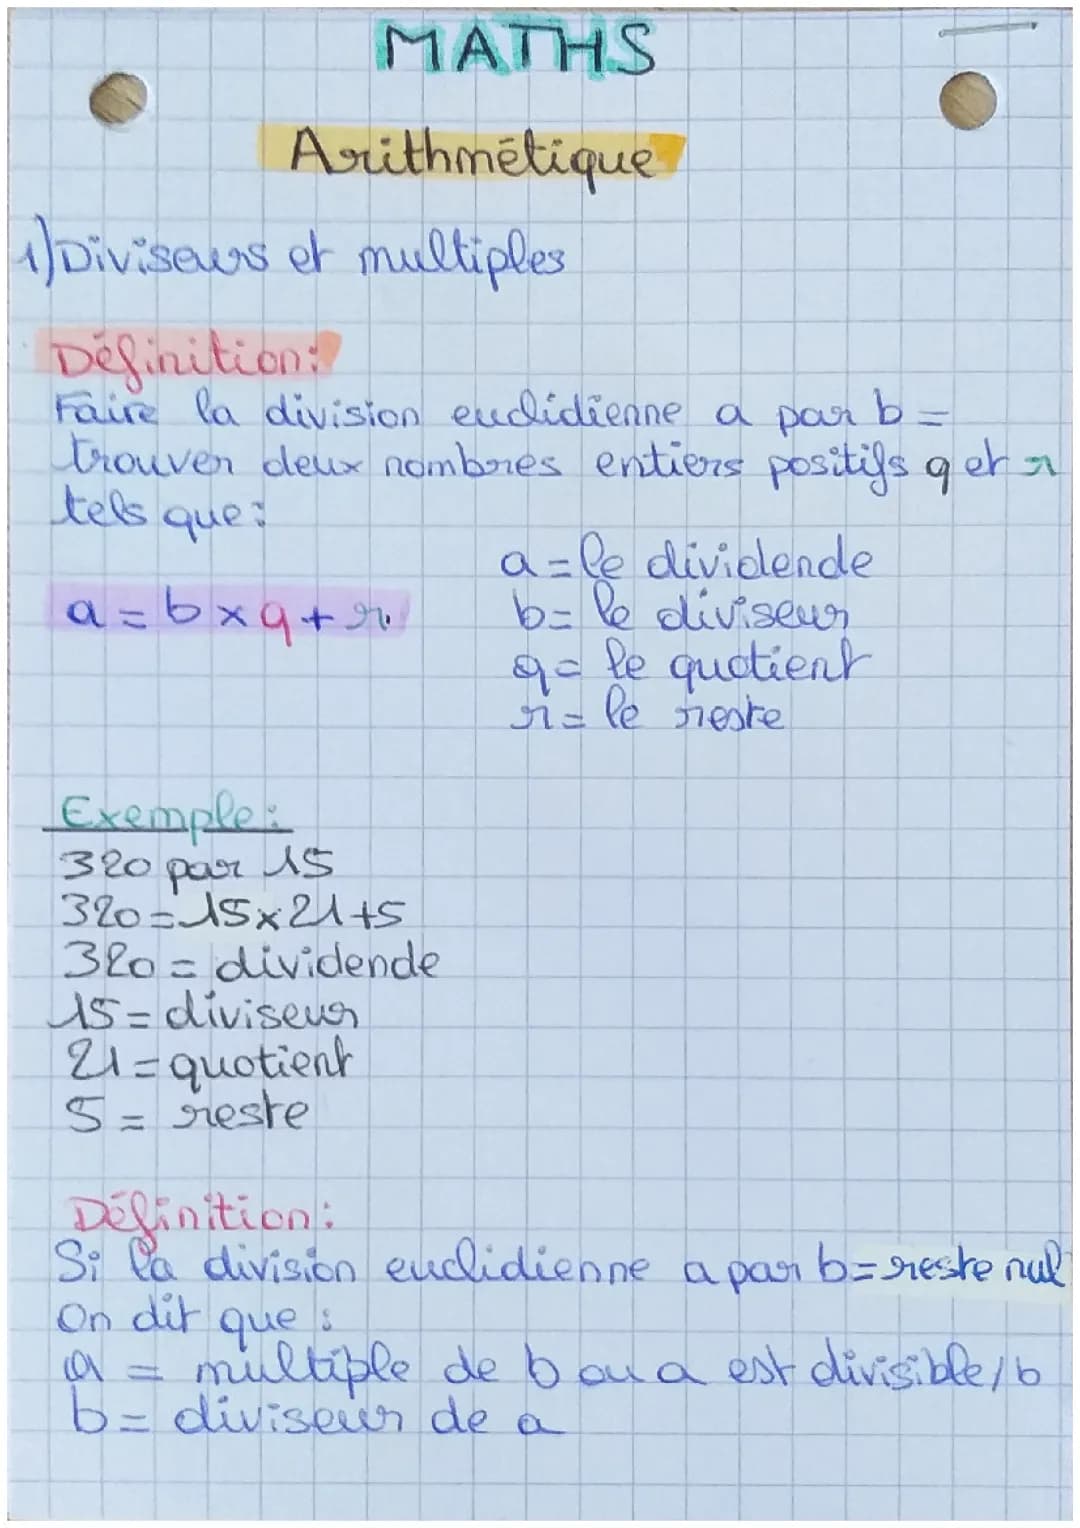 MATHS
Arithmétique
1) Diviseurs et multiples
Définition:
Faire la division euclidienne a par b =
trouver deux nombres entiers positifs q et r
tels que:
a = le dividende
a = b x q + r.
b = le diviseur
q = le quotient
r = le reste
Exemple:
320 par 15
320 = 15 x 21 + 5
320 = dividende
15 = diviseur
21 = quotient
5 = reste
Définition:
Si la division euclidienne a par b = reste nul
On dit que:
a = multiple de b ou a est divisible / b
b = diviseur de a